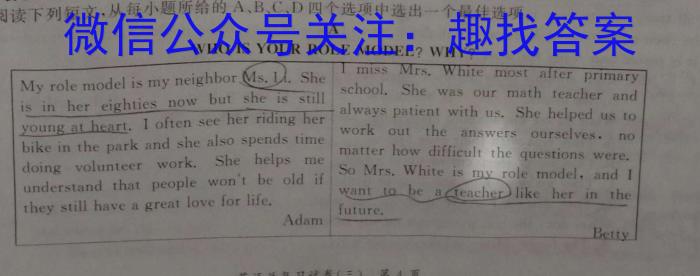 阅读下列短文,从每小题所给的 A、B、C、D四个选项中选出一个最佳选项
微信公众号关注：趣找答案
WHO IS YOUR ROLE MODEL? WHY?
My role model is my neighbor Ms. Li. She
is in her eighties now but she is still
young at heart. I often see her riding her
bike in the park and she also spends time
doing volunteer work. She helps me
understand that people won't be old if
they still have a great love for life.
Adam
I miss Mrs. White most after primary
school. She was our math teacher and
always patient with us. She helped us to
work out the answers ourselves, no
matter how difficult the questions were.
So Mrs. White is my role model, and I
want to be a teacher like her in the
future.
Betty